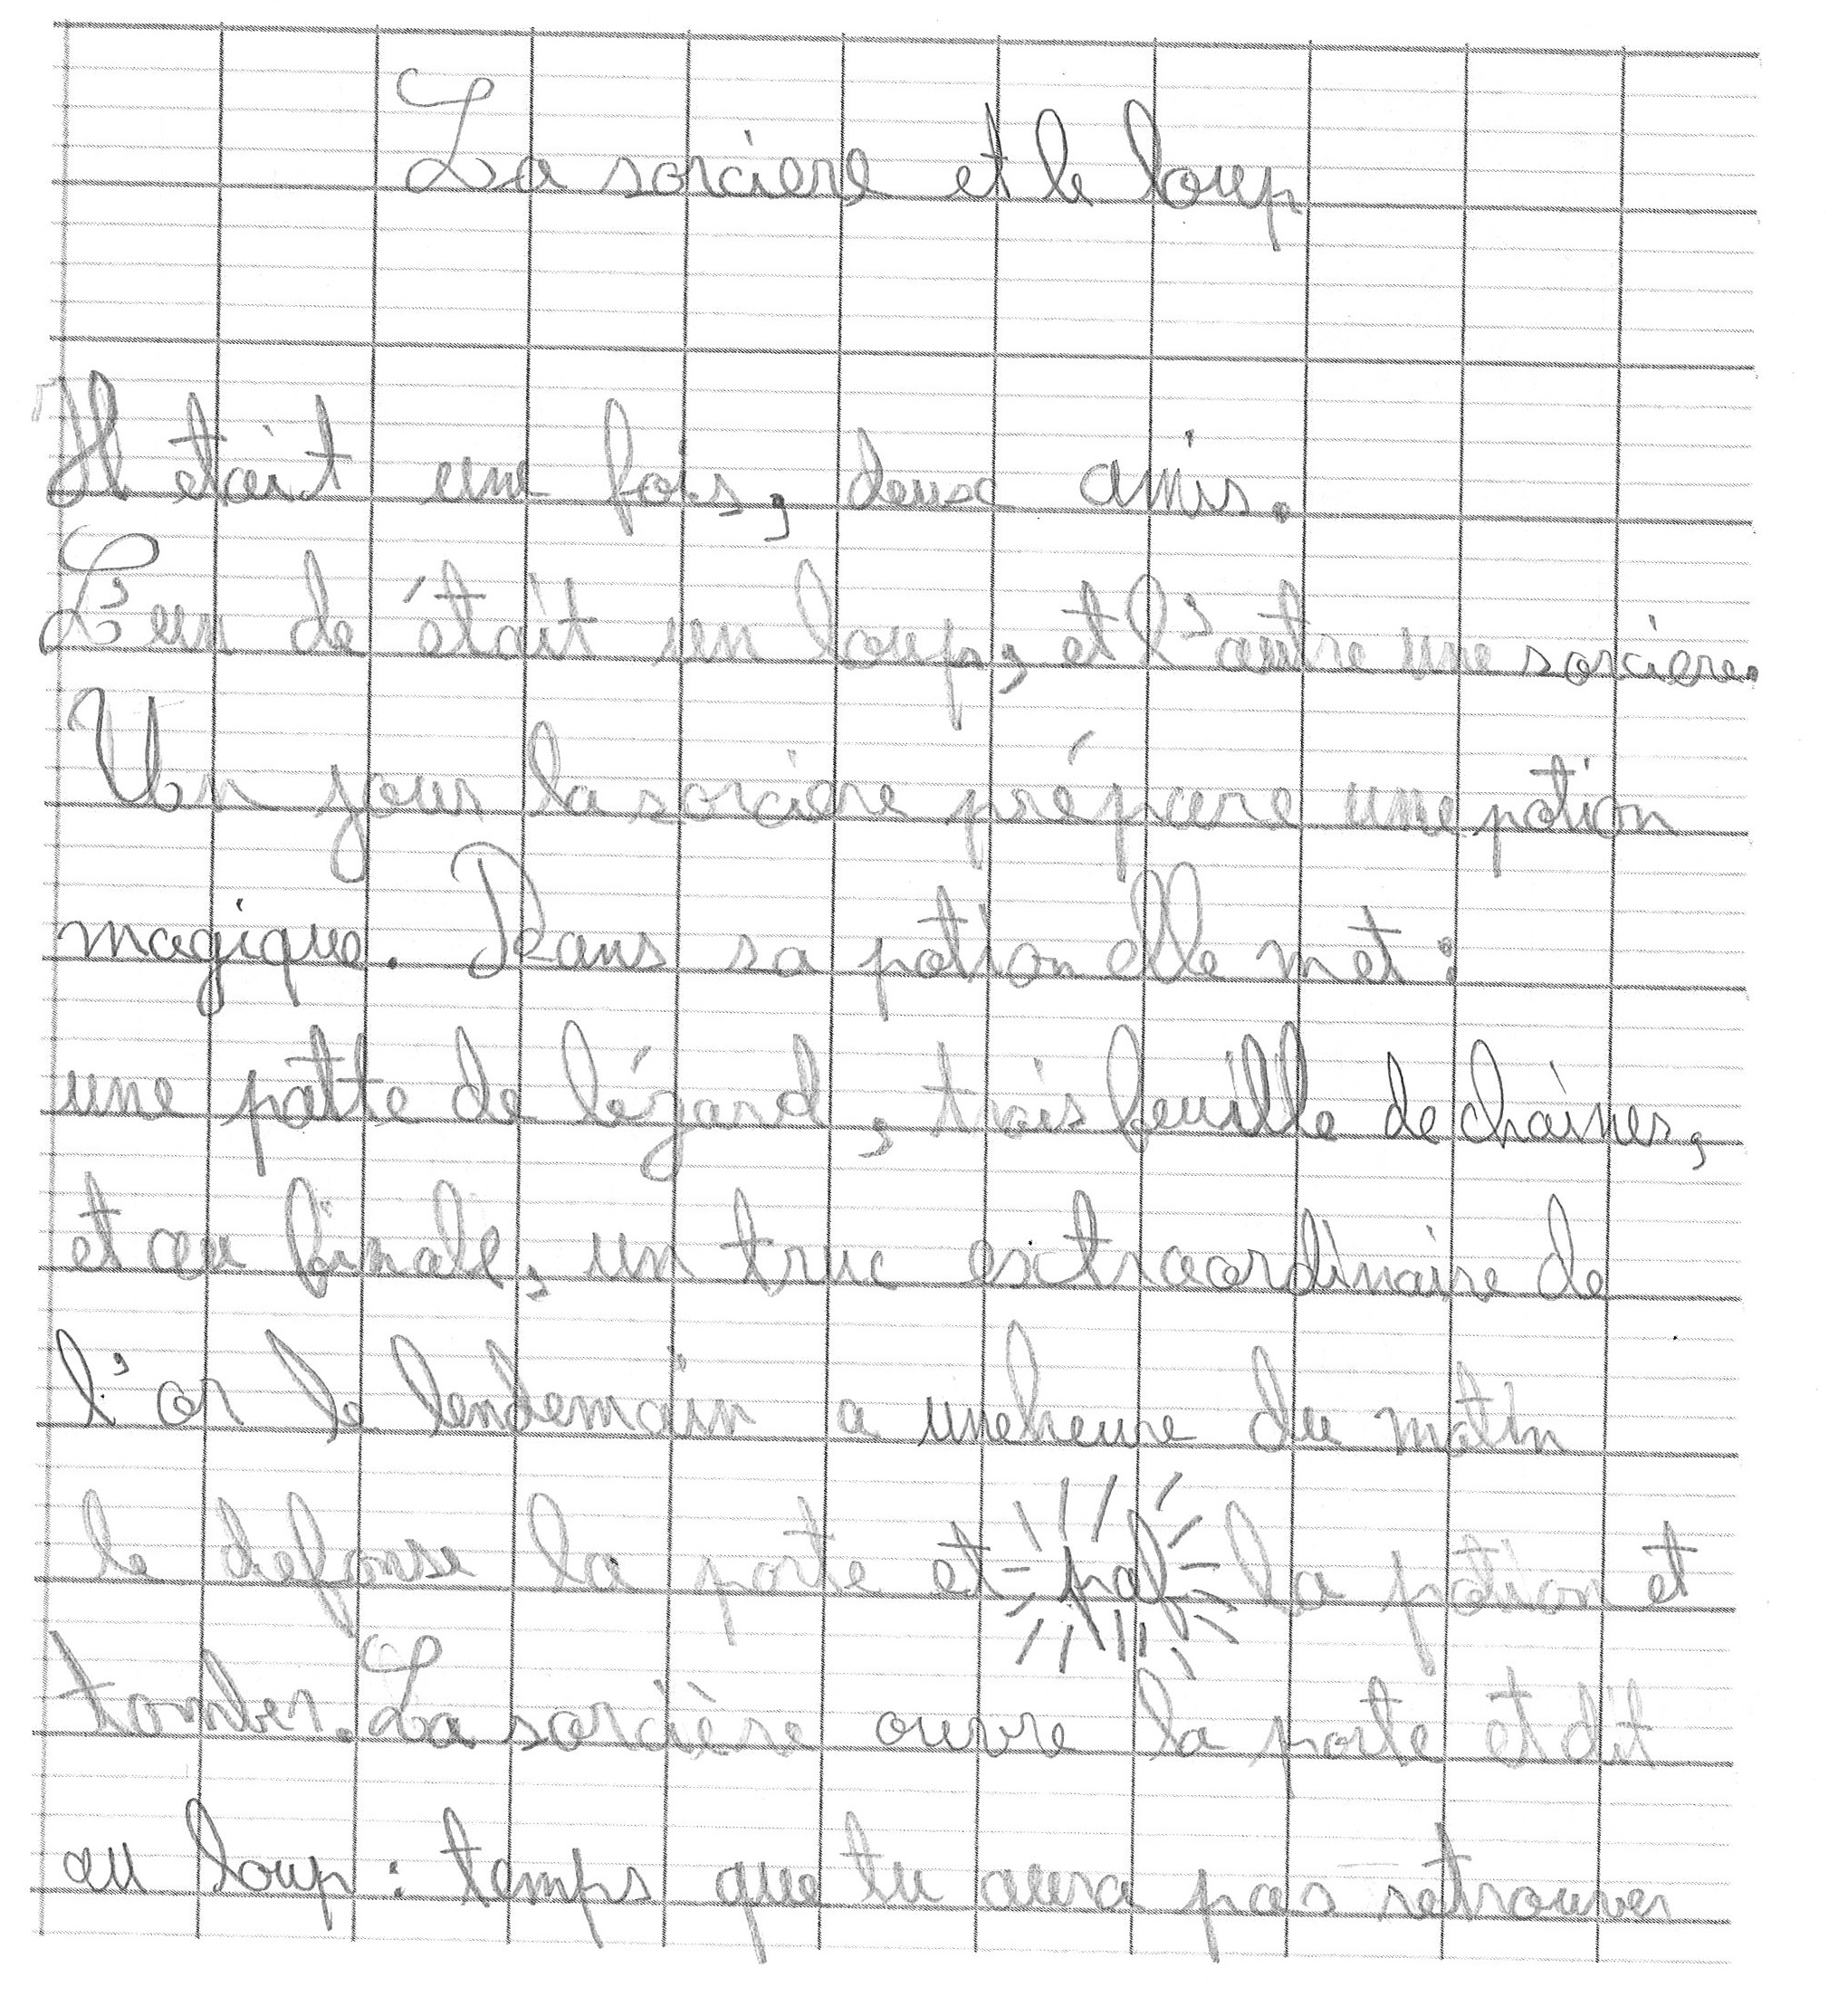 La sorciere et le loup
Il etait une fois, deux amis.
L'un de était un loup, et l'autre une sorciere.
Un jour la sorciere prépare une potion
magique. Dans sa potion elle met :
une patte de lézard, trois feuille de chaines,
et au finale, un truc extraordinaire de
l'or le lendemain a une heure du matin
le defonse la porte et paf la potion et
tomber. La sorcière ouvre la porte et dit
au loup : temps que tu aura pas retrouver